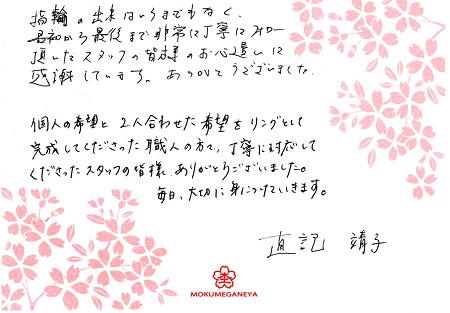 指輪の出来はいうまでもなく、
最初から最後まで非常に丁寧に対応
頂いたスタッフの皆様のお心遣いに
感謝しています。ありがとうございました。
個人の希望と2人合わせた希望をリングとして
完成してくださった職人の方々、丁寧に対応して
くださったスタッフの皆様、ありがとうございました。
毎日、大切に身につけていきます。
直記 靖子
MOKUMEGANEYA